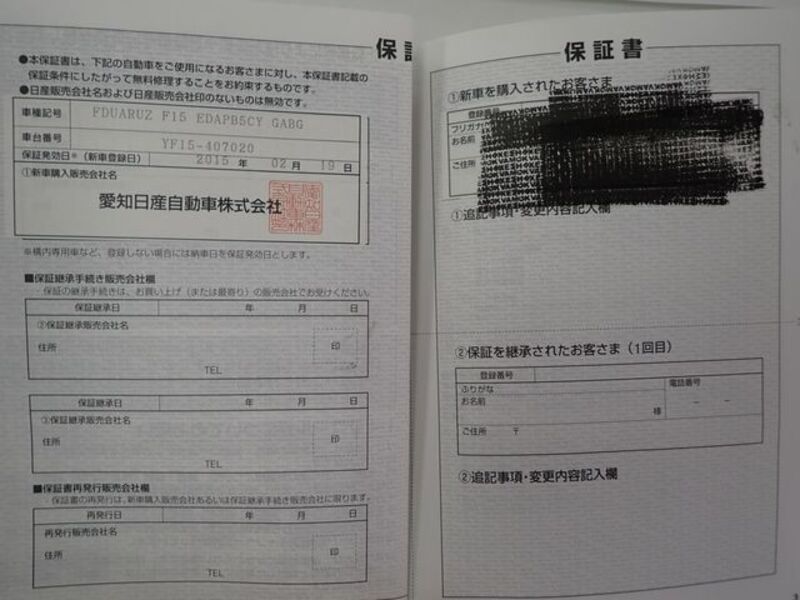 保
●本保証書は、下記の自動車をご使用になるお客さまに対し、本保証書記載の
保証条件にしたがって無料修理することをお約束するものです。
●日産販売会社名および日産販売会社印のないものは無効です。
車種記号 FDUARUZ F15 EDAPB5CY GABG
車台番号 YF15-407020
保証発効日*(新車登録日) 2015 年 02 月 19 日
①新車購入販売会社名
愛知日産自動車株式会社
※構内専用車など、登録しない場合には納車日を保証発効日とします。
■保証継承手続き販売会社欄
・保証の継承手続きは、お買い上げ(または最寄り)の販売会社でお受けください。
保証継承日 年 月 日
②保証継承販売会社名
住所 印
TEL
保証継承日 年 月 日
③保証継承販売会社名
住所 印
TEL
■保証書再発行販売会社欄
・保証書の再発行は、新車購入販売会社あるいは保証継承手続き販売会社に限ります。
再発行日 年 月 日
再発行販売会社名
住所 印
TEL
保証書
①新車を購入されたお客さま
登録番号
フリガナ
お名前
ご住所
①追記事項・変更内容記入欄
②保証を継承されたお客さま(1回目)
登録番号
ふりがな 電話番号
お名前 様 － －
ご住所 〒
②追記事項・変更内容記入欄